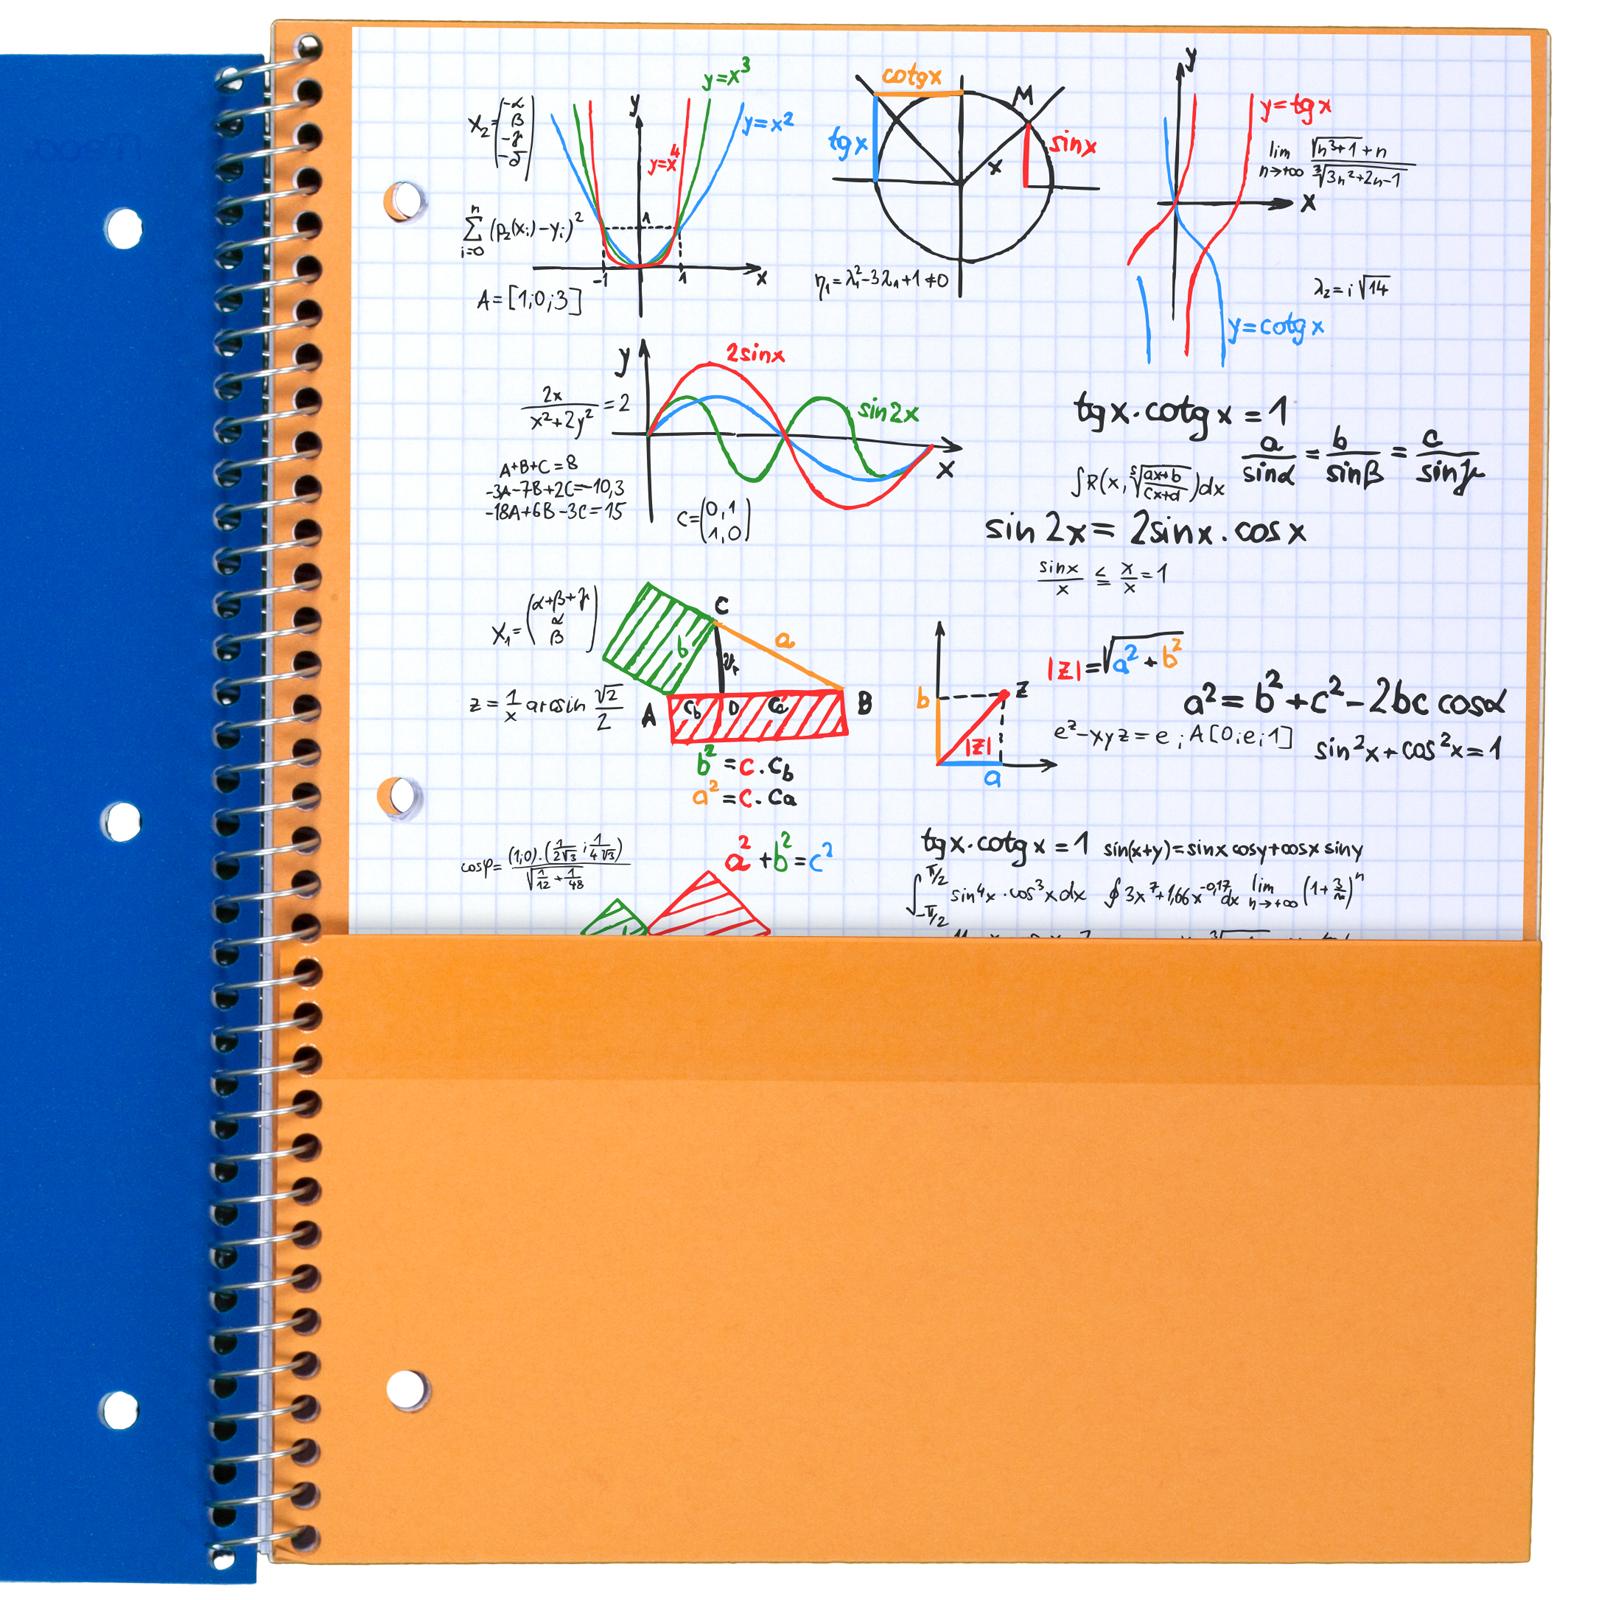 X₂=(-α β -γ -δ)
y
y=x³
y=x²
y=x⁴
1
-1
1
x
n
∑ (p₂(xᵢ)-yᵢ)²
i=0
A=[1;0;3]
cotgx
tgx
M
x
sinx
η₁=λ₁²-3λ₁+1≠0
y
y=tgx
x
lim n→+∞ (√(n³+1)+n)/(∛(3n²+2n-1))
λ₂=i√14
y=cotgx
y
2sinx
sin2x
x
2x/(x²+2y²)=2
A+B+C=8
-3A-7B+2C=-10,3
-18A+6B-3C=15
C=(0,1 1,0)
tgx·cotgx=1
a/sinα=b/sinβ=c/sinγ
∫R(x, ⁵√((ax+b)/(cx+d)))dx
sin2x=2sinx·cosx
sinx/x ≤ x/x=1
X₁=(α+β+γ α β)
z=1/x arcsin √2/2
C
b
a
A
c_b
D
c_a
B
b²=c·c_b
a²=c·c_a
b
z
|z|
a
|z|=√(a²+b²)
a²=b²+c²-2bc cosα
e^z-xyz=e; A[0;e;1]
sin²x+cos²x=1
cosφ=((1;0)·(1/(2√3);1/(4√3)))/√(1/12+1/48)
a²+b²=c²
tgx·cotgx=1
sin(x+y)=sinx cosy+cosx siny
∫_{-π/2}^{π/2} sin⁴x·cos³x dx
∮3x⁷+1,66x^{-0,17}dx
lim n→+∞